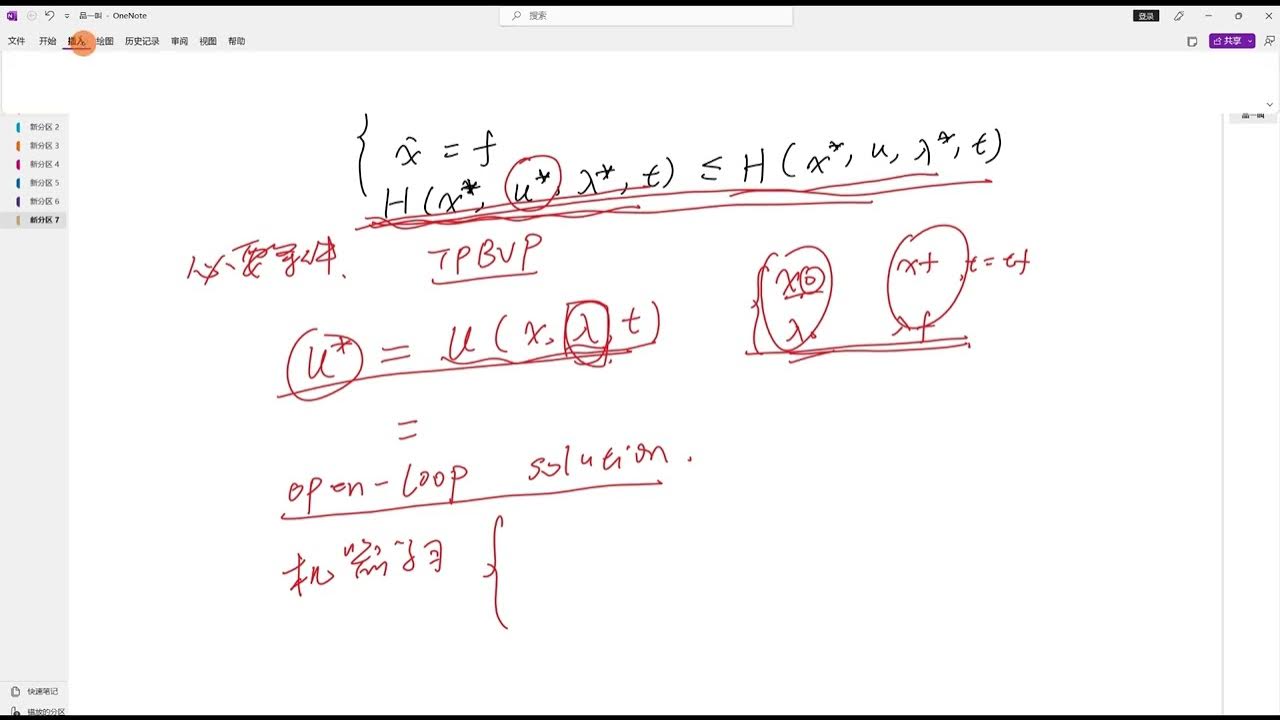 品一叫 - OneNote
搜索
登录
文件 开始 插入 绘图 历史记录 审阅 视图 帮助
共享
新分区 2
新分区 3
新分区 4
新分区 5
新分区 6
新分区 7
品一叫
ẋ = f
H(x*, u*, λ*, t) ≤ H(x*, u, λ*, t)
必要条件. TPBVP
x(0) xf, t = tf
λ0 λf
u* = u(x, λ, t)
=
open-loop solution.
机器学习 {
快速笔记
错放的分区